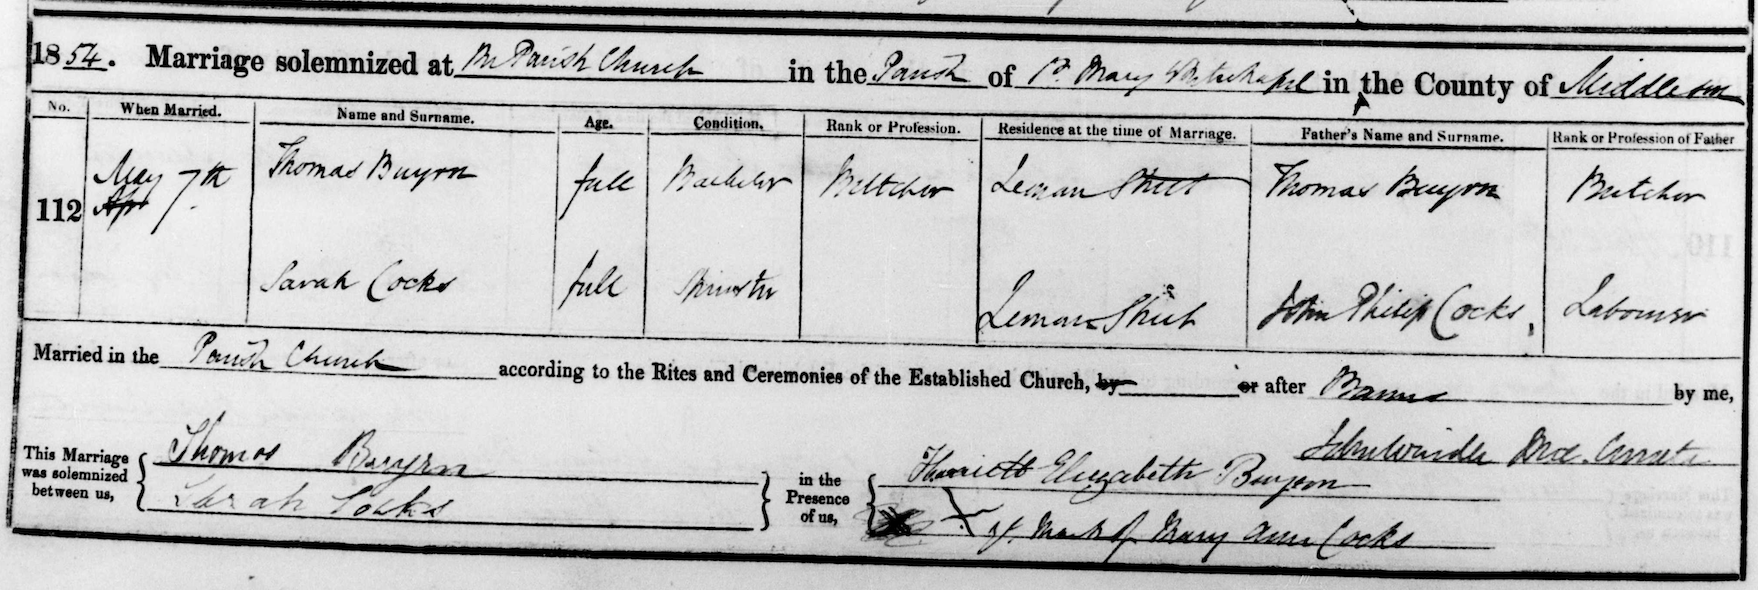 1854. Marriage solemnized at the Parish Church in the Parish of St. Mary Whitechapel in the County of Middlesex
No. When Married. Name and Surname. Age. Condition. Rank or Profession. Residence at the time of Marriage. Father's Name and Surname. Rank or Profession of Father
112 May 7th Thomas Buyrn full Bachelor Butcher Leman Street Thomas Buyrn Butcher
Apr
Sarah Cocks full Spinster Leman Street John Philip Cocks, Labourer
Married in the Parish Church according to the Rites and Ceremonies of the Established Church, by or after Banns by me,
This Marriage was solemnized between us, Thomas Buyrn in the Presence of us, Harriett Elizabeth Buyrn Curate
Sarah Cocks X Mark of Mary Ann Cocks